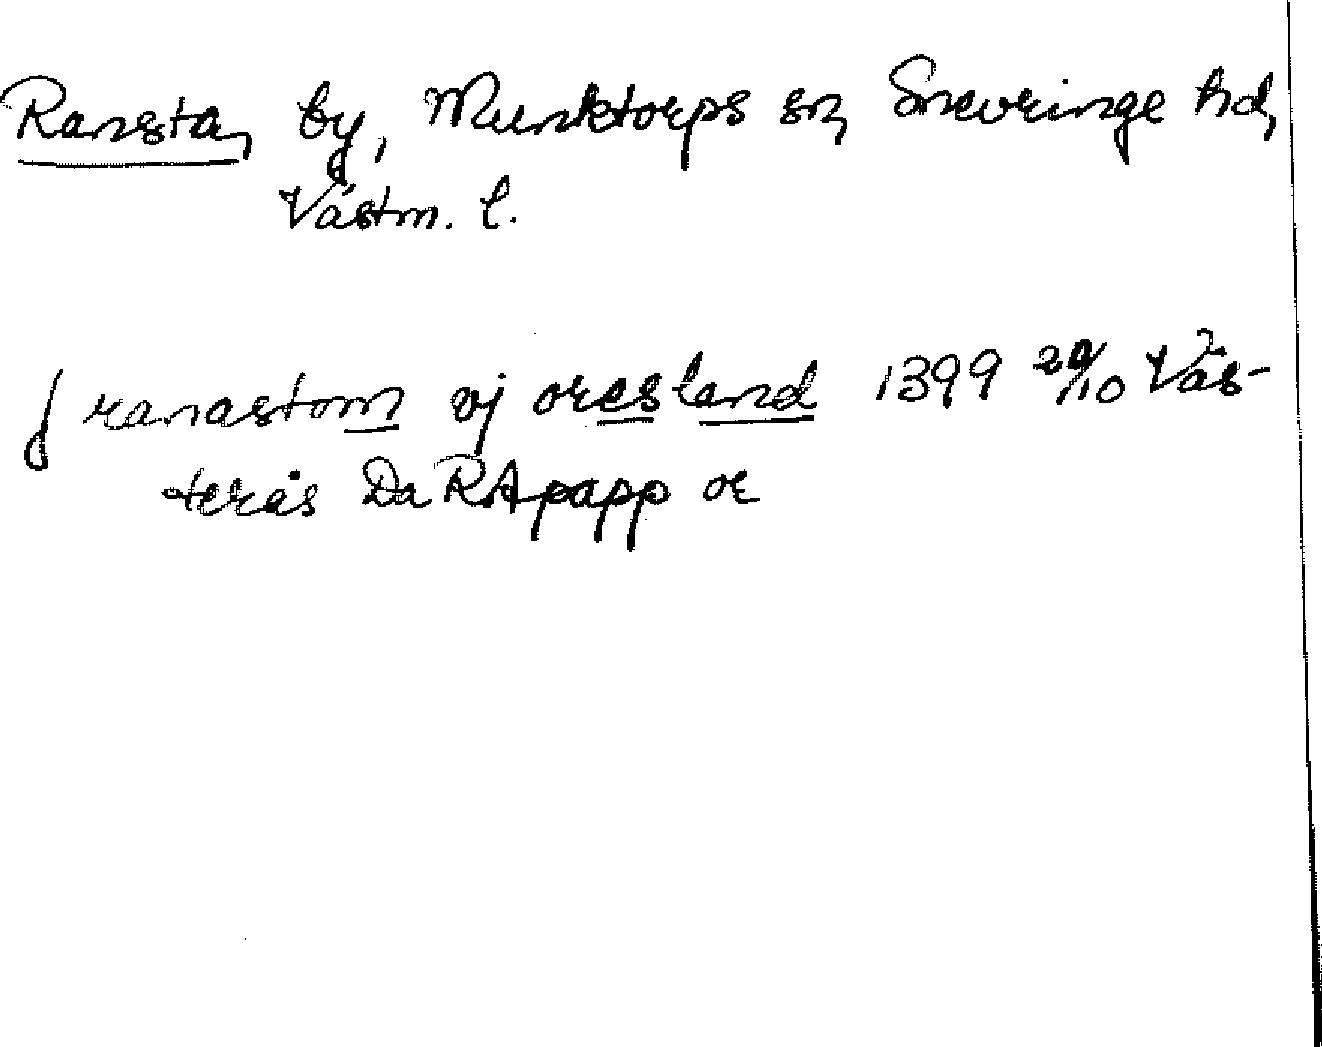 Ransta, by, Munktorps sn, Snevringe hd,
Västm. l.
J ranastom vj oresland 1399 20/10 Väs-
terås Da RApapp or